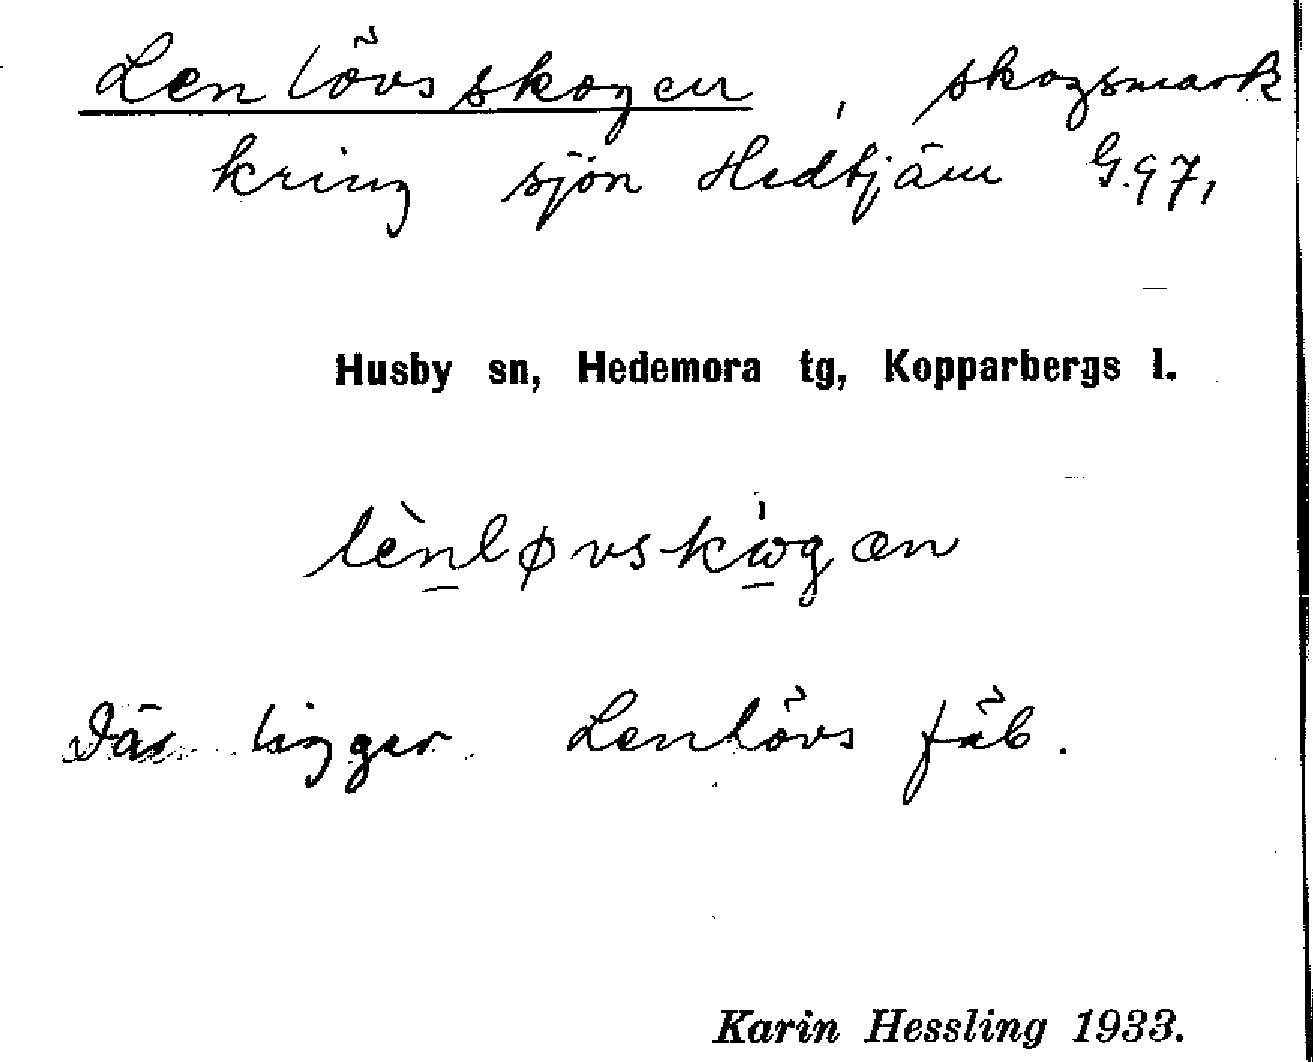 Lenlövsskogen, skogsmark
kring sjön Hedtjärn G.97,
Husby sn, Hedemora tg, Kopparbergs l.
lènløvskẁgæn
Där ligger Lenlövs fäb.
Karin Hessling 1933.